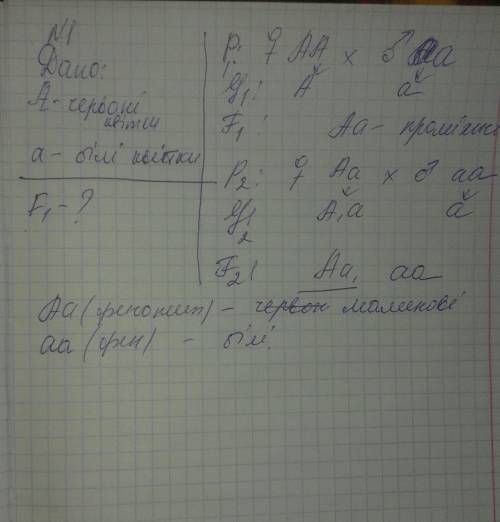 N1
Дано:
A - червоні
квітки
a - білі квітки
F₁ - ?
P₁: ♀ AA × ♂ aa
G₁: A a
F₁: Aa - проміжне
P₂: ♀ Aa × ♂ aa
G₂: A, a a
F₂: Aa, aa
Aa (фенотип) - червон малинові
aa (фен) - білі.